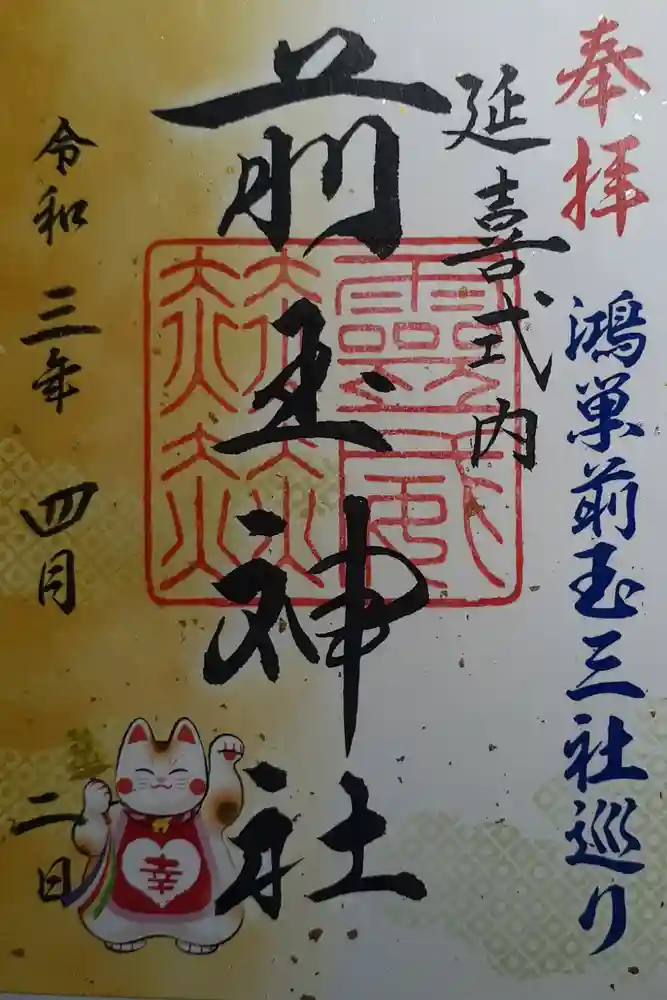 奉拝
鴻巣前玉三社巡り
延喜式内
前玉神社
霊威赫赫
令和三年四月二日
幸